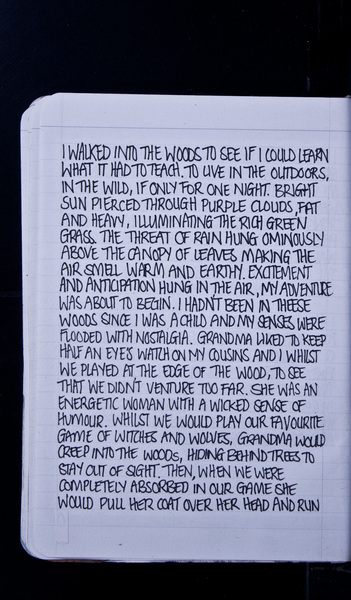 I WALKED INTO THE WOODS TO SEE IF I COULD LEARN
WHAT IT HAD TO TEACH. TO LIVE IN THE OUTDOORS,
IN THE WILD, IF ONLY FOR ONE NIGHT. BRIGHT
SUN PIERCED THROUGH PURPLE CLOUDS, FAT
AND HEAVY, ILLUMINATING THE RICH GREEN
GRASS. THE THREAT OF RAIN HUNG OMINOUSLY
ABOVE THE CANOPY OF LEAVES MAKING THE
AIR SMELL WARM AND EARTHY. EXCITEMENT
AND ANTICIPATION HUNG IN THE AIR, MY ADVENTURE
WAS ABOUT TO BEGIN. I HADN'T BEEN IN THEESE
WOODS SINCE I WAS A CHILD AND MY SENSES WERE
FLOODED WITH NOSTALGIA. GRANDMA LIKED TO KEEP
HALF AN EYE'S WATCH ON MY COUSINS AND I WHILST
WE PLAYED AT THE EDGE OF THE WOOD, TO SEE
THAT WE DIDN'T VENTURE TOO FAR. SHE WAS AN
ENERGETIC WOMAN WITH A WICKED SENSE OF
HUMOUR. WHILST WE WOULD PLAY OUR FAVOURITE
GAME OF WITCHES AND WOLVES, GRANDMA WOULD
CREEP INTO THE WOODS, HIDING BEHIND TREES TO
STAY OUT OF SIGHT. THEN, WHEN WE WERE
COMPLETELY ABSORBED IN OUR GAME SHE
WOULD PULL HER COAT OVER HER HEAD AND RUN